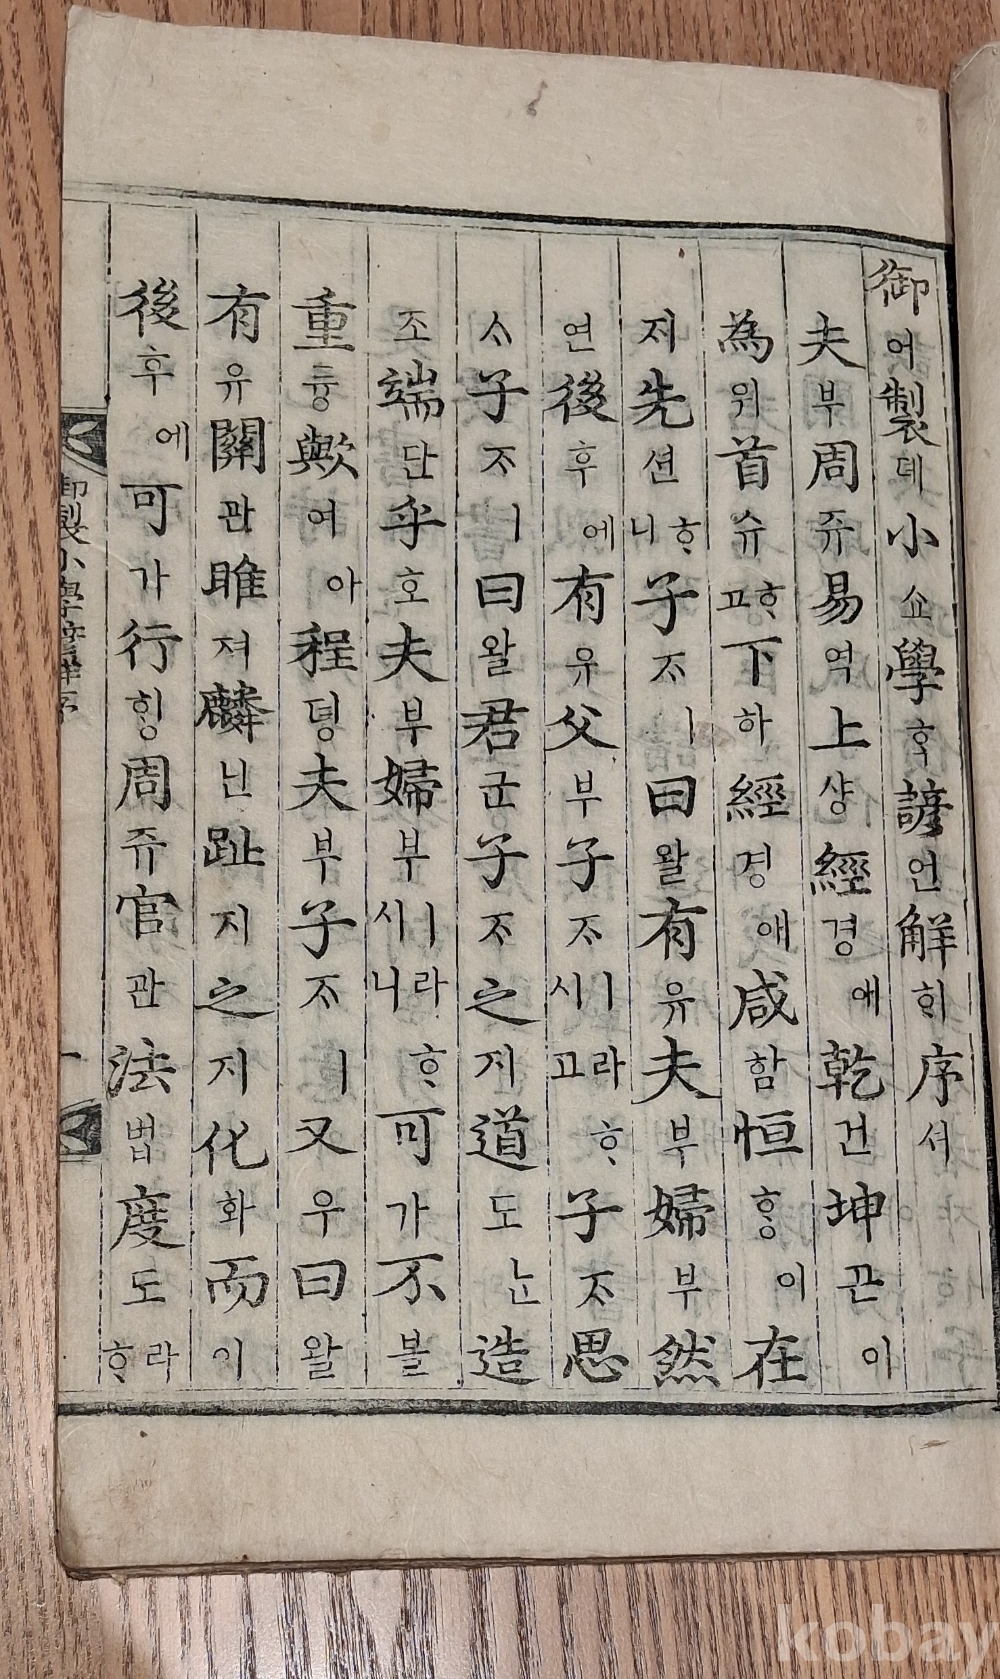 御어製뎨小쇼學ᄒᆞᆨ諺언解ᄒᆡ序셔
夫부周쥬易역上샹經경애乾건坤곤이
為위首슈ᄒᆞ고下하經경애咸함恒ᄒᆞᆼ이在
ᄌᆡ先션ᄒᆞ니子ᄌᆞㅣ曰왈有유夫부婦부然
연後후에有유父부子ᄌᆞㅣ라ᄒᆞ시고子ᄌᆞ思
ᄉᆞ子ᄌᆞㅣ曰왈君군子ᄌᆞ之지道도ᄂᆞᆫ造
조端단乎호夫부婦부ㅣ라ᄒᆞ시니可가不블
重듕歟여아程뎡夫부子ᄌᆞㅣ又우曰왈
有유關관雎져麟닌趾지之지化화而이
後후에可가行ᄒᆡᆼ周쥬官관法법度도라ᄒᆞ
御製小學諺解序
一
kobay